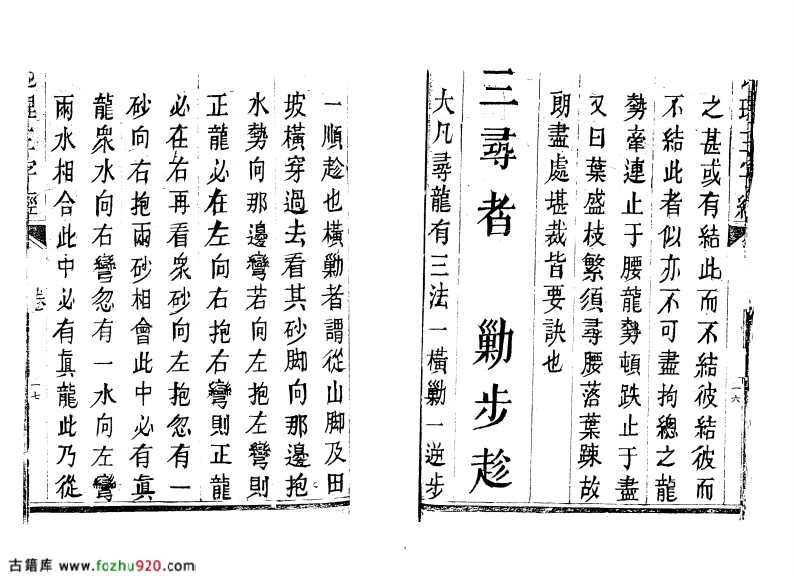 之甚或有結此而不結彼結彼而
不結此者似亦不可盡拘總之龍
勢牽連止于腰龍勢頓跌止于盡
又曰葉盛枝繁須尋腰落葉踈故
朗盡處堪裁皆要訣也
三尋者 勦步趁
大凡尋龍有三法一橫勦一逆步
一六
一順趁也橫勦者謂從山脚及田
坡橫穿過去看其砂脚向那邊抱
水勢向那邊彎若向左抱左彎則
正龍必在左向右抱右彎則正龍
必在右再看衆砂向左抱忽有一
砂向右抱兩砂相會此中必有真
龍衆水向右彎忽有一水向左彎
兩水相合此中必有真龍此乃從
地理三字經
卷
一七
古籍库 www.fozhu920.com